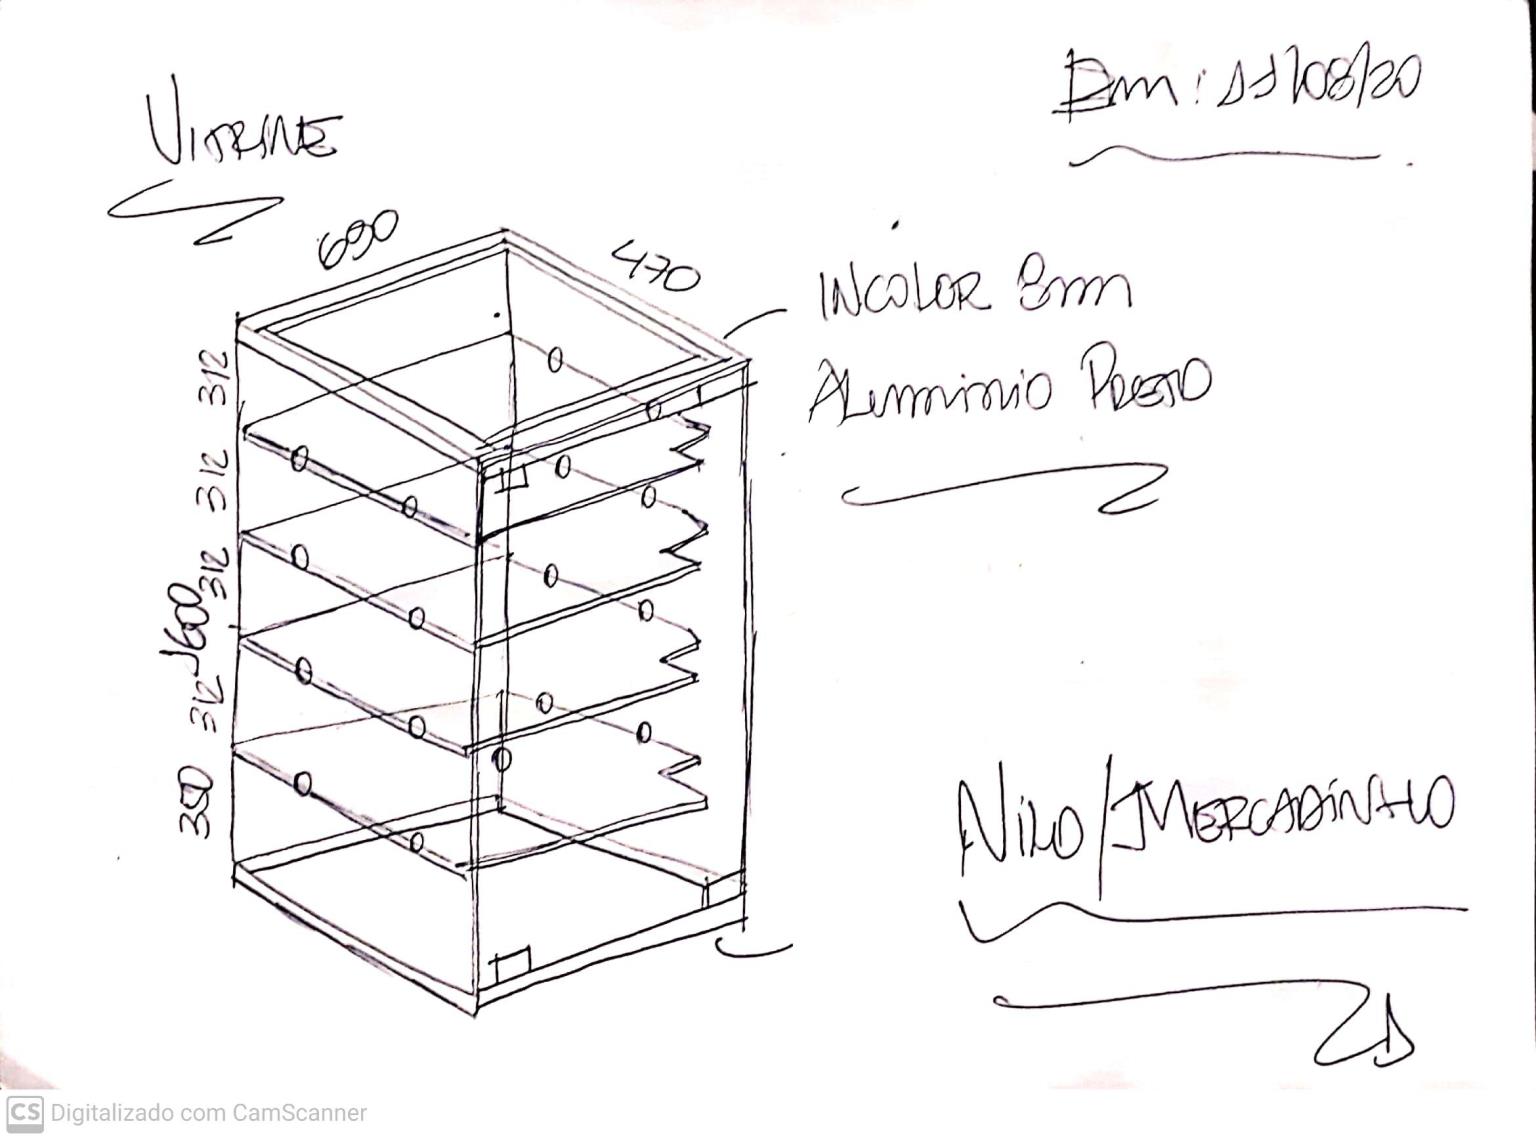 VITRINE
Em: 11/08/20
690
470
INCOLOR 8mm
ALUMINIO PRETO
312
312
312
1600
312
350
NILO/MERCADINHO
CS Digitalizado com CamScanner